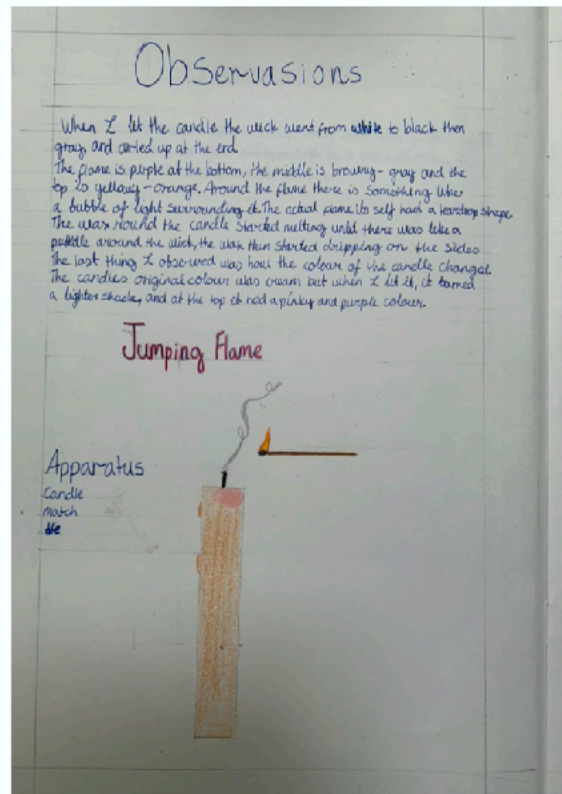 Observasions
When I lit the candle the wick went from white to black then
gray, and curled up at the end.
The flame is purple at the bottom, the middle is browny-gray and the
top is yellowy-orange. Around the flame there is something like
a bubble of light surrounding it. The actual flame its self had a teardrop shape
The wax round the candle started melting until there was like a
puddle around the wick, the wax then started dripping on the sides
The last thing I observed was how the colour of the candle changed
The candles original colour was cream but when I lit it, it turned
a lighter shade, and at the top it had a pinky and purple colour.
Jumping Flame
Apparatus
Candle
Match